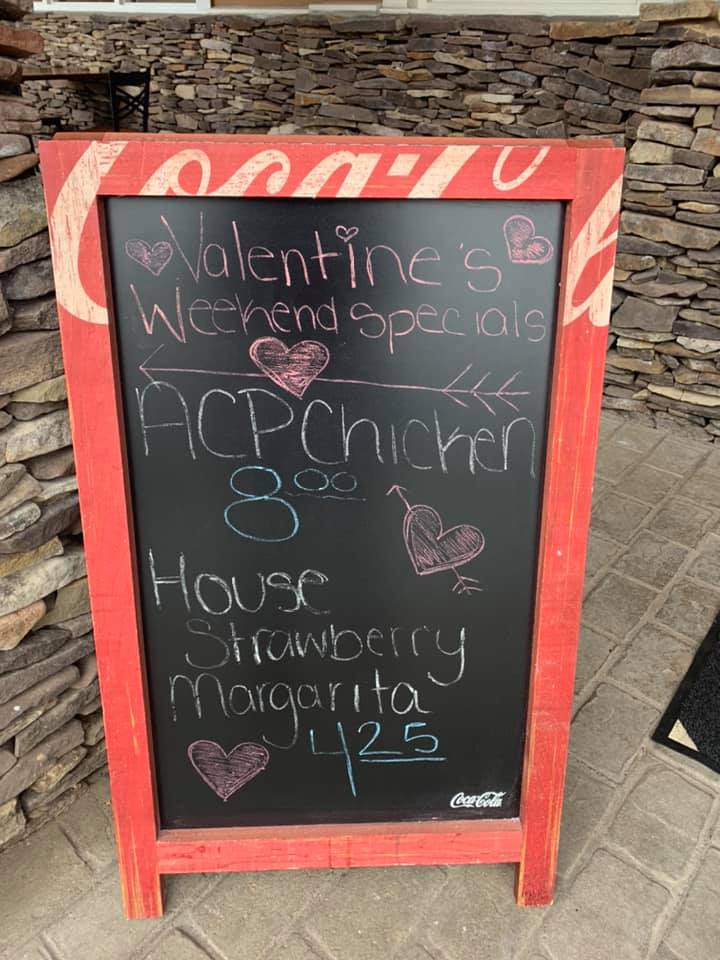 Coca-Cola
Valentine's
Weekend Specials
ACP Chicken
8.00
House
Strawberry
Margarita
4 25
Coca-Cola